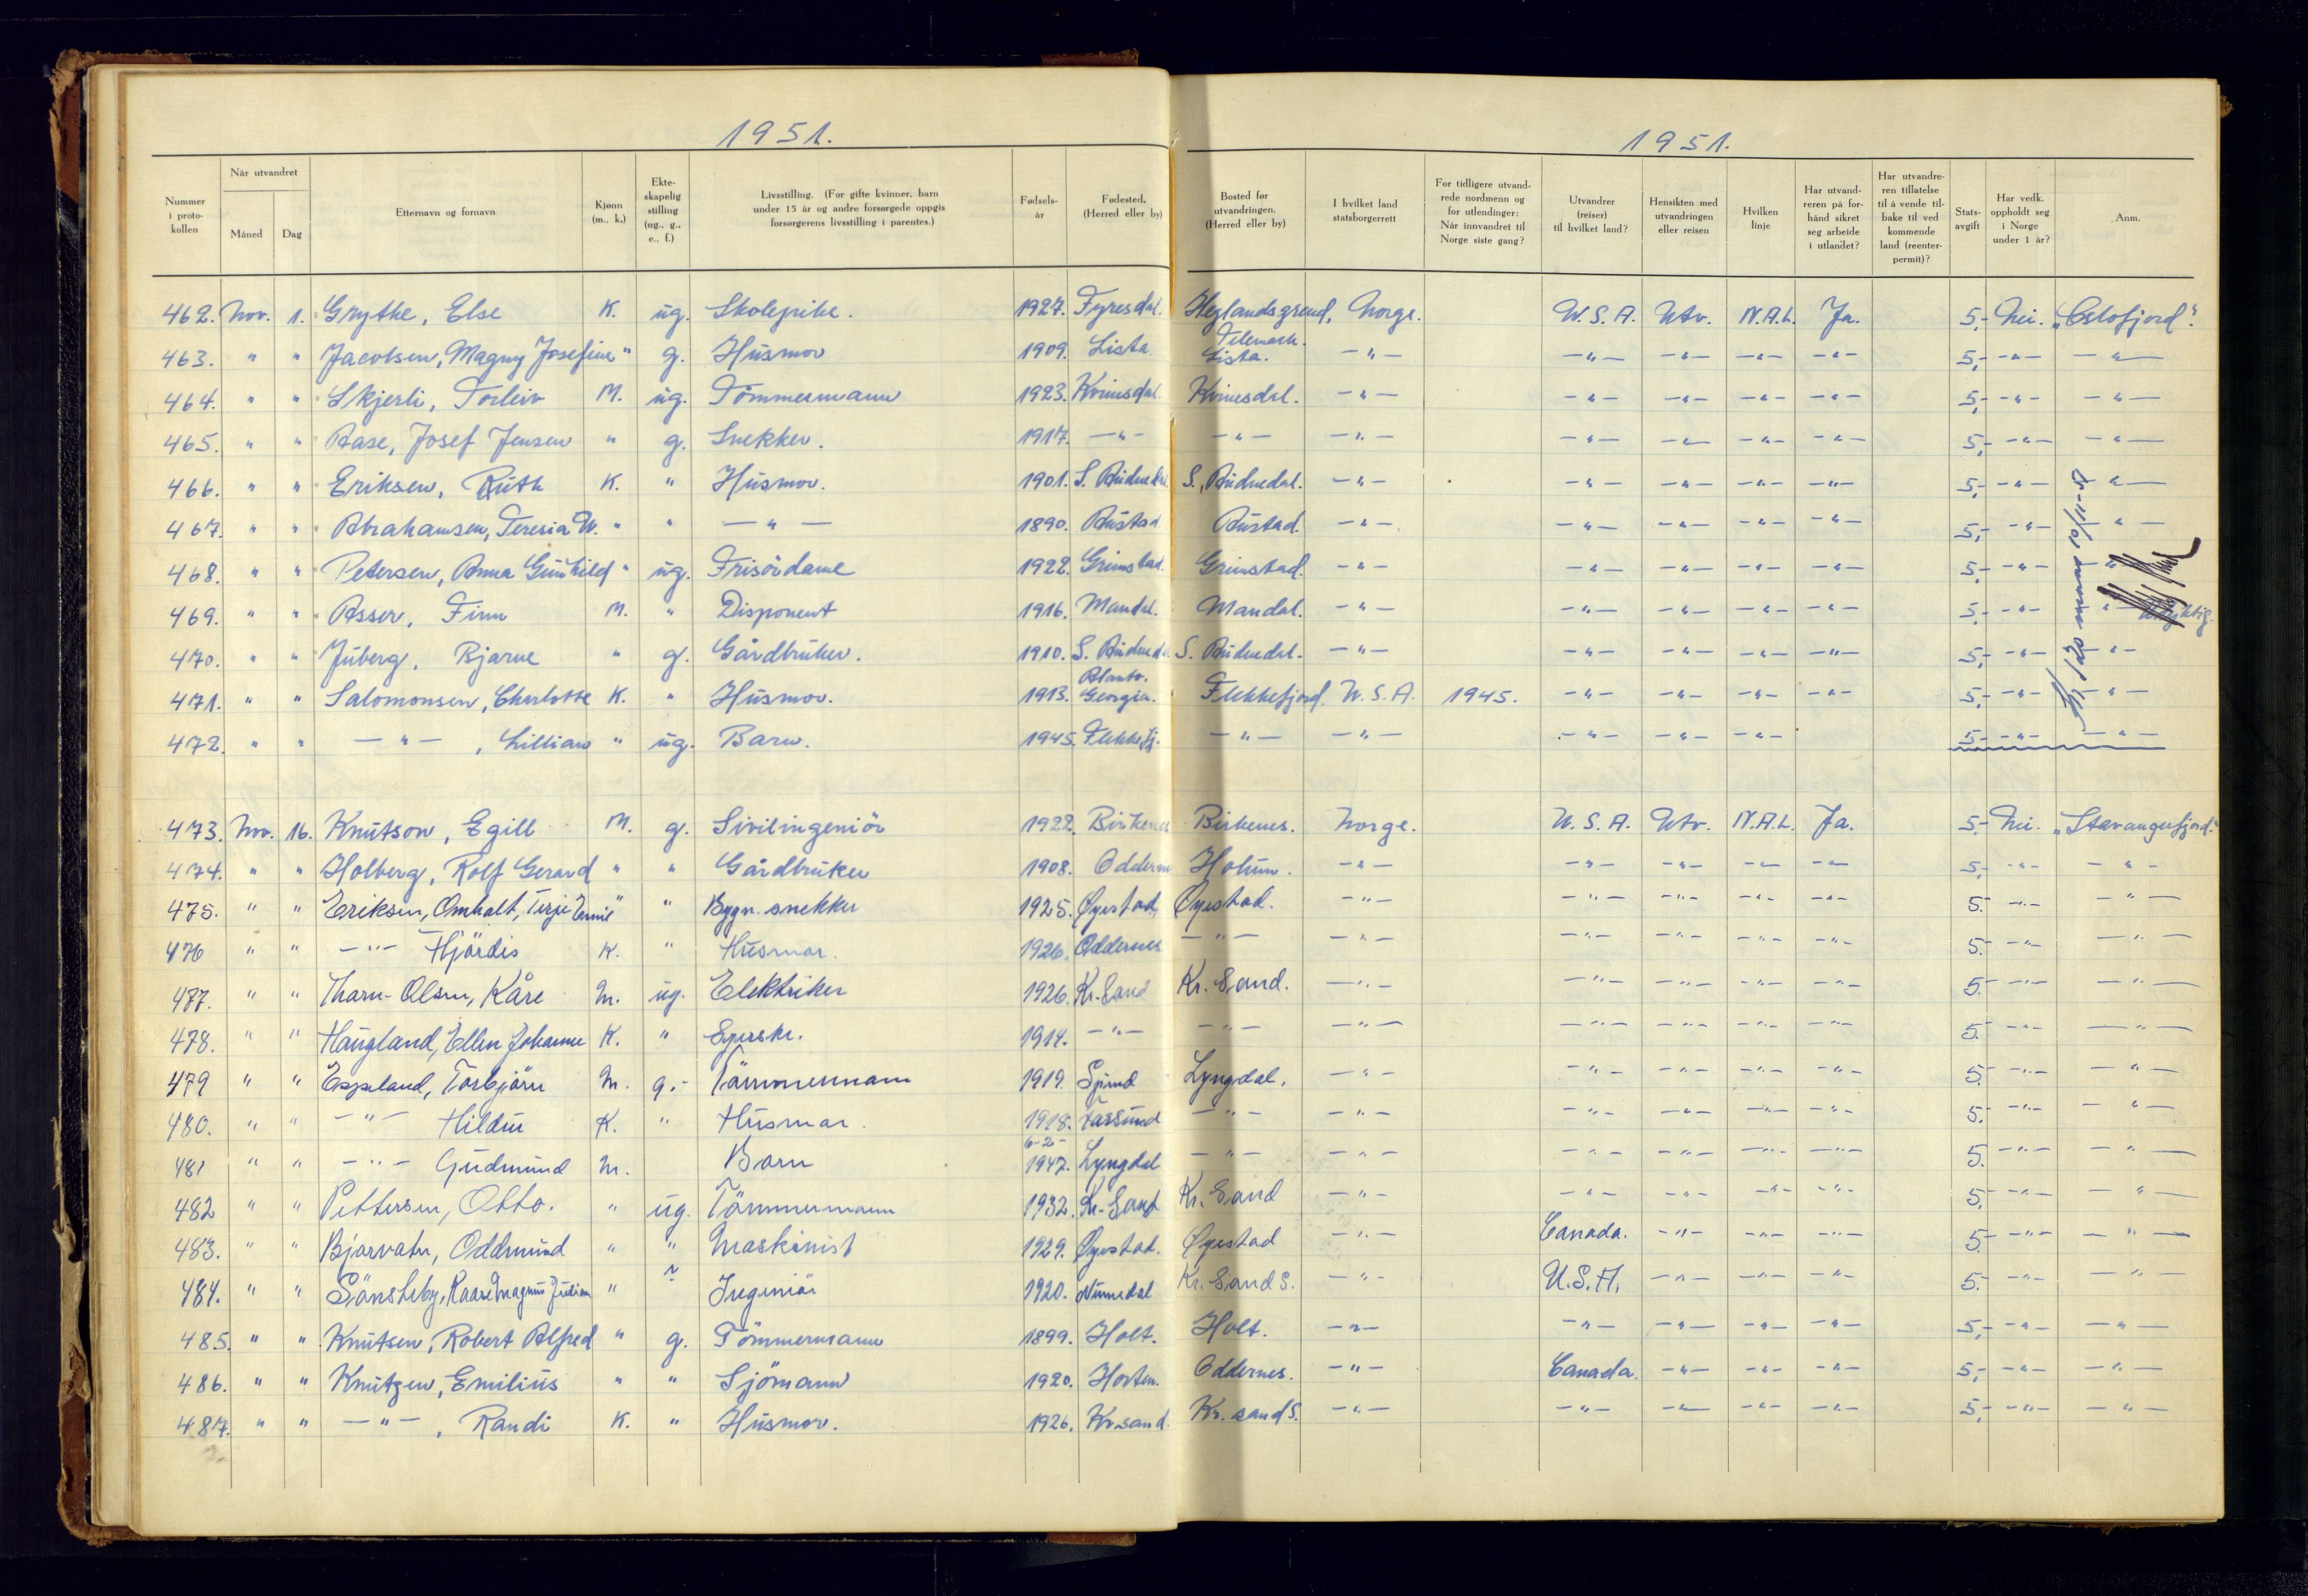 1951.
1951.
Nummer i proto-kollen | Når utvandret Måned Dag | Etternavn og fornavn | Kjønn (m., k.) | Ekte-skapelig stilling (ug., g., e., f.) | Livsstilling. (For gifte kvinner, barn under 15 år og andre forsørgede oppgis forsørgerens livsstilling i parentes.) | Fødsels-år | Fødested. (Herred eller by) | Bosted før utvandringen. (Herred eller by) | I hvilket land statsborgerrett | For tidligere utvand-rede nordmenn og for utlendinger: Når innvandret til Norge siste gang? | Utvandrer (reiser) til hvilket land? | Hensikten med utvandringen eller reisen | Hvilken linje | Har utvand-reren på for-hånd sikret seg arbeide i utlandet? | Har utvandre-ren tillatelse til å vende til-bake til ved kommende land (reenter-permit)? | Stats-avgift | Har vedk. oppholdt seg i Norge under 1 år? | Anm.
462. Nov. 1. Grythe, Else K. ug. Skolepike. 1927. Fyresdal. Heglandsgrend, Telemark. Norge. U.S.A. Utv. N.A.L. Ja. 5,- Nei. "Oslofjord".
463. " " Jacobsen, Magny Josefine " g. Husmor 1909. Lista Lista. -"- -"- -"- -"- -"- 5,- -"- -"-
464. " " Skjerli, Torleiv M. ug. Tömmermann 1923. Kvinesdal. Kvinesdal. -"- -"- -"- -"- -"- 5,- -"- -"-
465. " " Aase, Josef Jensen " g. Snekker. 1917. -"- -"- -"- -"- -"- -"- -"- 5,- -"- -"-
466. " " Eriksen, Ruth K. " Husmor. 1901. S. Audnedal. S. Audnedal. -"- -"- -"- -"- -"- 5,- -"- -"-
467. " " Abrahamsen, Teresia W. " " -"- 1890. Austad Austad. -"- -"- -"- -"- -"- 5,- -"- -"-
468. " " Petersen, Anna Gunhild " ug. Frisördame 1922. Grimstad. Grimstad. -"- -"- -"- -"- -"- 5,- -"- -"-
469. " " Asser, Finn M. " Disponent 1916. Mandal. Mandal. -"- -"- -"- -"- -"- 5,- -"- -"-
470. " " Juberg, Bjarne " g. Gårdbruker. 1910. S. Audnedal. S. Audnedal. -"- -"- -"- -"- -"- 5,- -"- -"-
471. " " Salomonsen, Charlotte K. " Husmor. 1913. Georgia. Flekkefjord. U.S.A. 1945. -"- -"- -"- -"- 5,- -"- -"-
472. " " -"- , Lillian " ug. Barn. 1945. Flekkefj. -"- -"- -"- -"- -"- 5,- -"- -"-
473. Nov. 16. Knutson, Egill M. g. Sivilingeniör 1922. Birkenes Birkenes. Norge. U.S.A. Utv. N.A.L. Ja. 5,- Nei. "Stavangerfjord."
474. " " Holberg, Rolf Gerard " " Gårdbruker 1908. Oddernes Holum. -"- -"- -"- -"- -"- 5,- -"- -"-
475. " " Eriksen, Omholt, Terje Emil " " Bygn. snekker 1925. Øyestad, Øyestad. -"- -"- -"- -"- -"- 5.- -"- -"-
476 " " -"- Hjördis K. " Husmor. 1926. Oddernes -"- -"- -"- -"- -"- -"- 5.- -"- -"-
477. " " Tharn-Olsen, Kåre M. ug. Elektriker 1926. Kr. Sand Kr. Sand. -"- -"- -"- -"- -"- 5.- -"- -"-
478. " " Haugland, Ellen Johanne K. " Syerske. 1914. -"- -"- -"- -"- -"- -"- -"- 5.- -"- -"-
479 " " Espeland, Torbjörn M. g.- Tömmermann 1919. Spind Lyngdal. -"- -"- -"- -"- -"- 5.- -"- -"-
480. " " -"- Hildur K. " Husmor. 1918. Farsund -"- -"- -"- -"- -"- -"- 5.- -"- -"-
481 " " -"- Gudmund M. Barn 6-2- 1947. Lyngdal -"- -"- -"- -"- -"- -"- 5.- -"- -"-
482 " " Pettersen, Otto. " ug. Tömmermann 1932. Kr. Sand Kr. Sand -"- -"- -"- -"- -"- 5.- -"- -"-
483. " " Bjorvatn, Oddmund " " Maskinist 1929. Øyestad. Øyestad -"- Canada. -"- -"- -"- 5.- -"- -"-
484. " " Sönsteby, Kaare Magnus Julian " " Ingeniör 1920. Kr. Sand S. -"- U.S.A. -"- -"- -"- 5.- -"- -"-
485. " " Knutsen, Robert Alfred " g. Tömmermann 1899. Holt. Holt. -"- -"- -"- -"- -"- 5,- -"- -"-
486. " " Knutzen, Emilius " " Sjömann 1920. Horten. Oddernes. -"- Canada. -"- -"- -"- 5,- -"- -"-
487. " " -"- , Randi K. " Husmor. 1926. Kr.sand. Kr. sand S. -"- -"- -"- -"- -"- 5,- -"- -"-